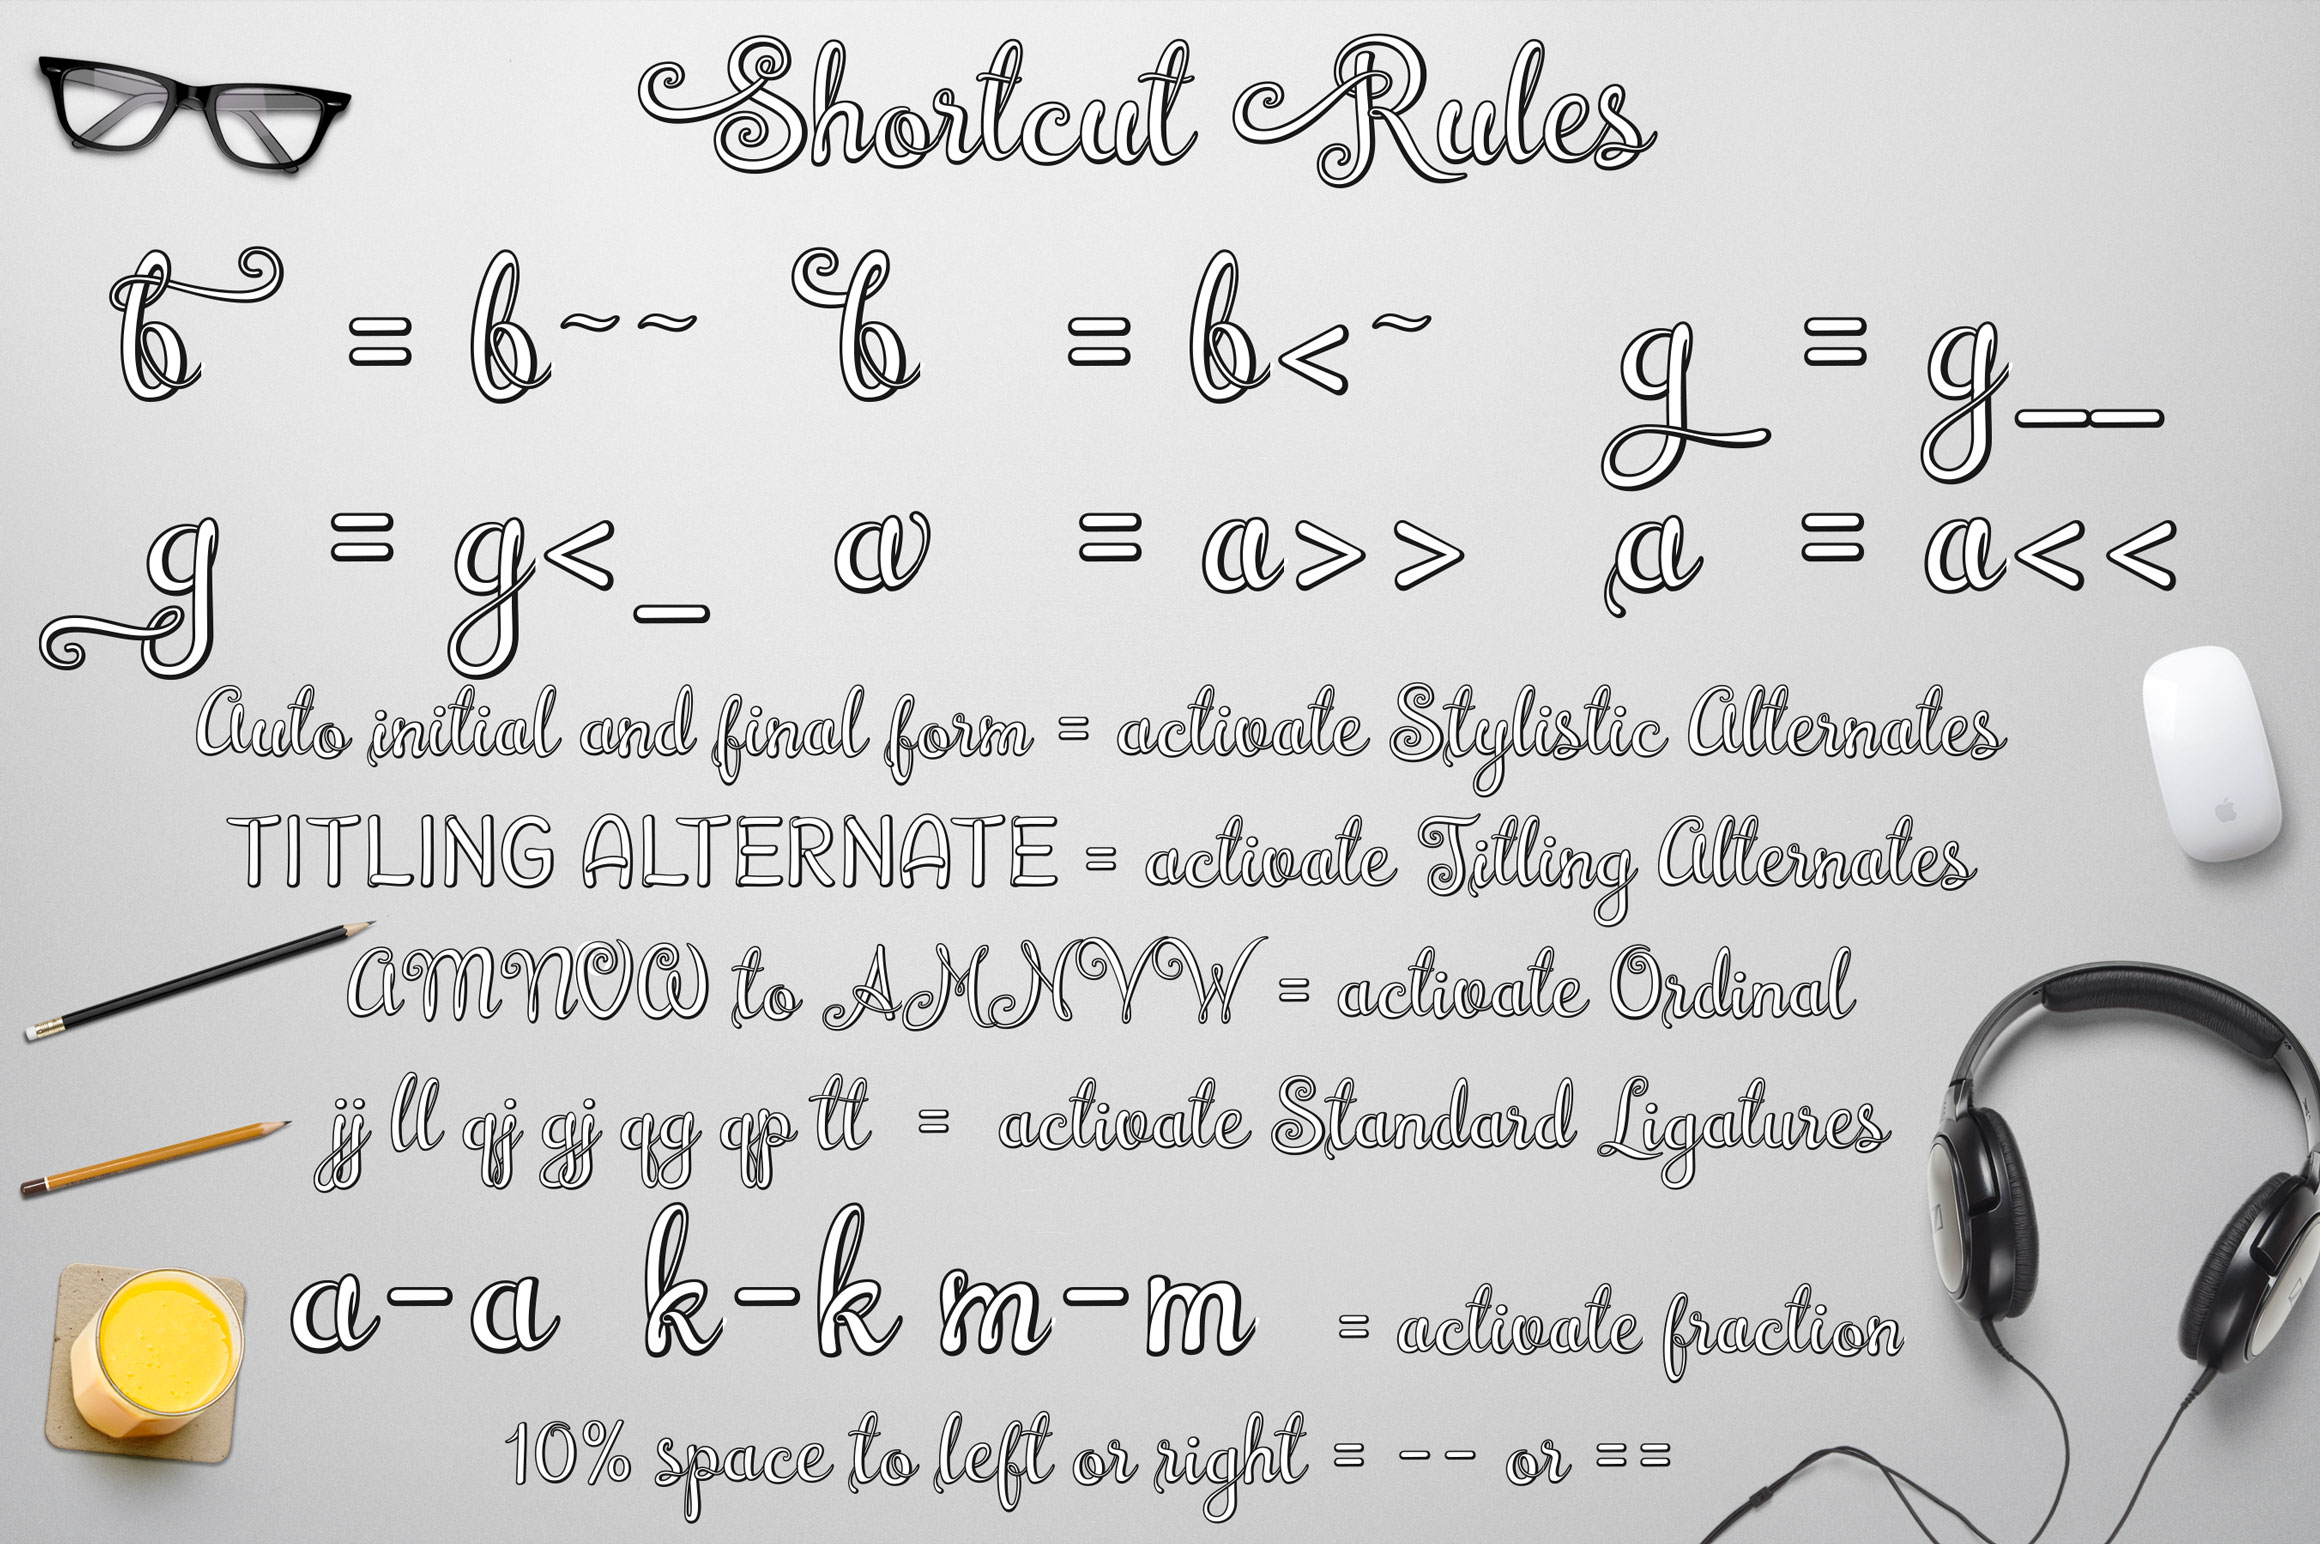 Shortcut Rules
b = b~~ b = b<~ g = g__
g = g<_ a = a>> a = a<<
Auto initial and final form = activate Stylistic Alternates
TITLING ALTERNATE = activate Titling Alternates
AMNVW to AMNVW = activate Ordinal
jj ll qj gj qg qp tt = activate Standard Ligatures
a-a k-k m-m = activate fraction
10% space to left or right = -- or ==